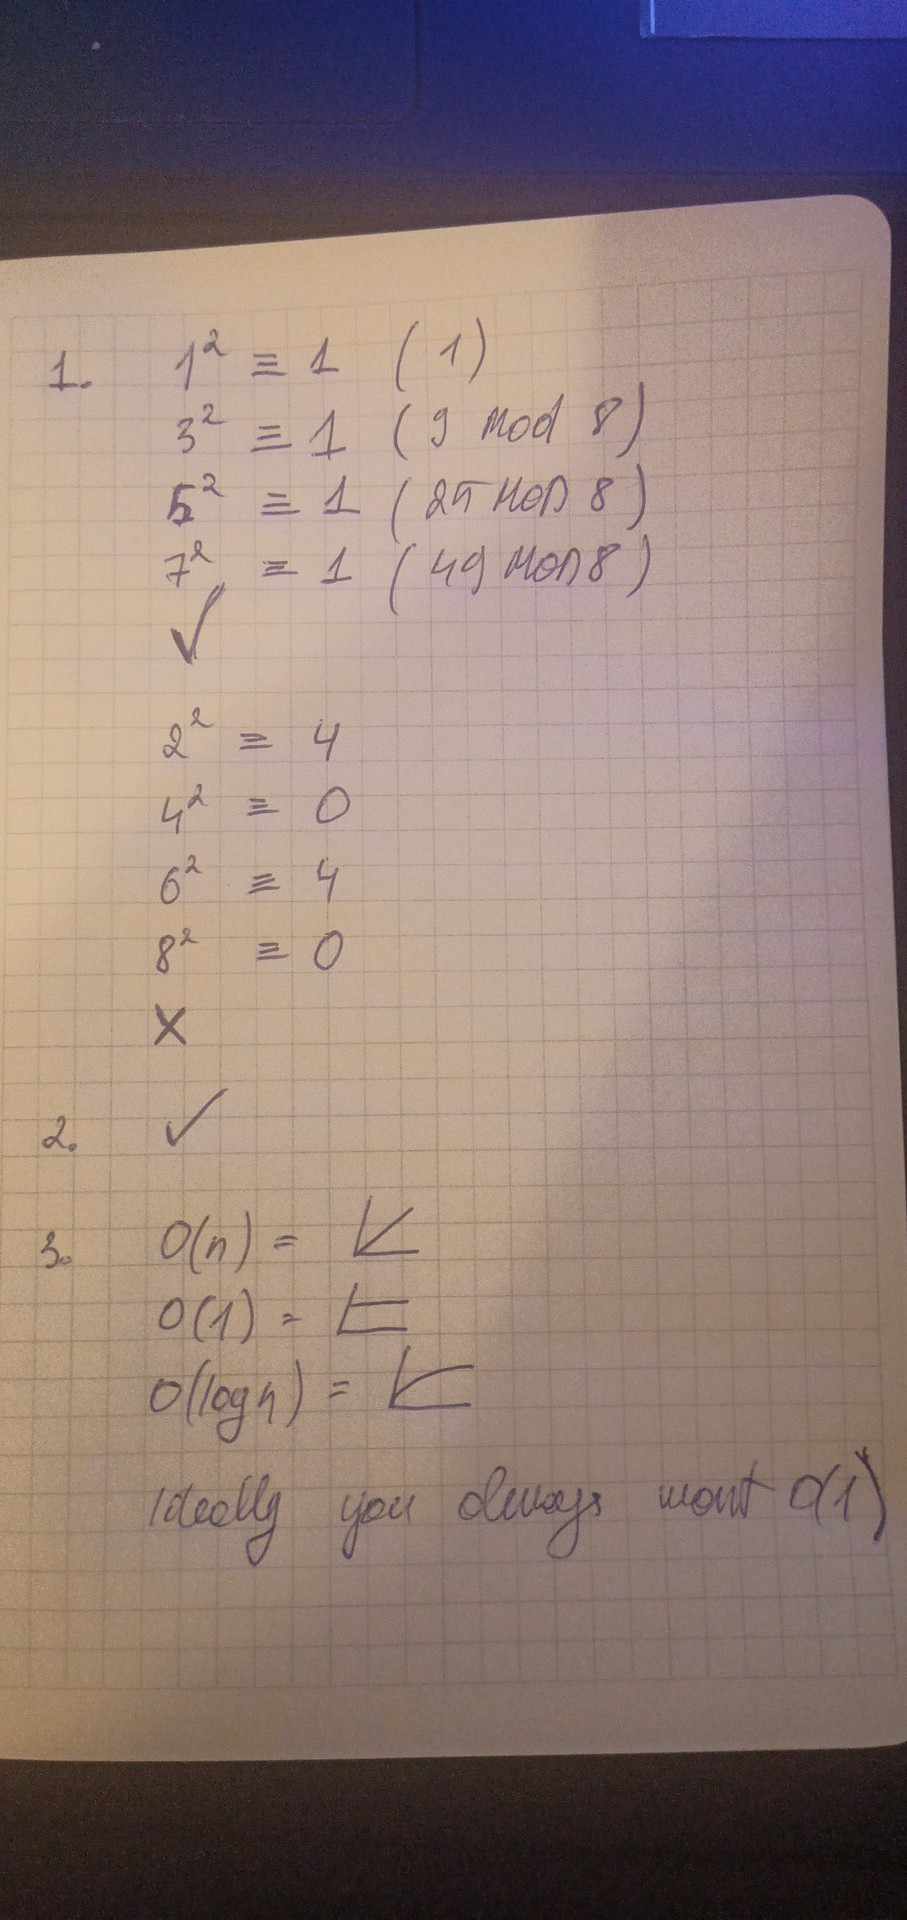 1. 1² ≡ 1 (1)
3² ≡ 1 (9 mod 8)
5² ≡ 1 (25 MOD 8)
7² ≡ 1 (49 MOD 8)
✓
2² ≡ 4
4² ≡ 0
6² ≡ 4
8² ≡ 0
X
2. ✓
3. O(n) =
O(1) =
O(log n) =
Ideally you always want O(1)